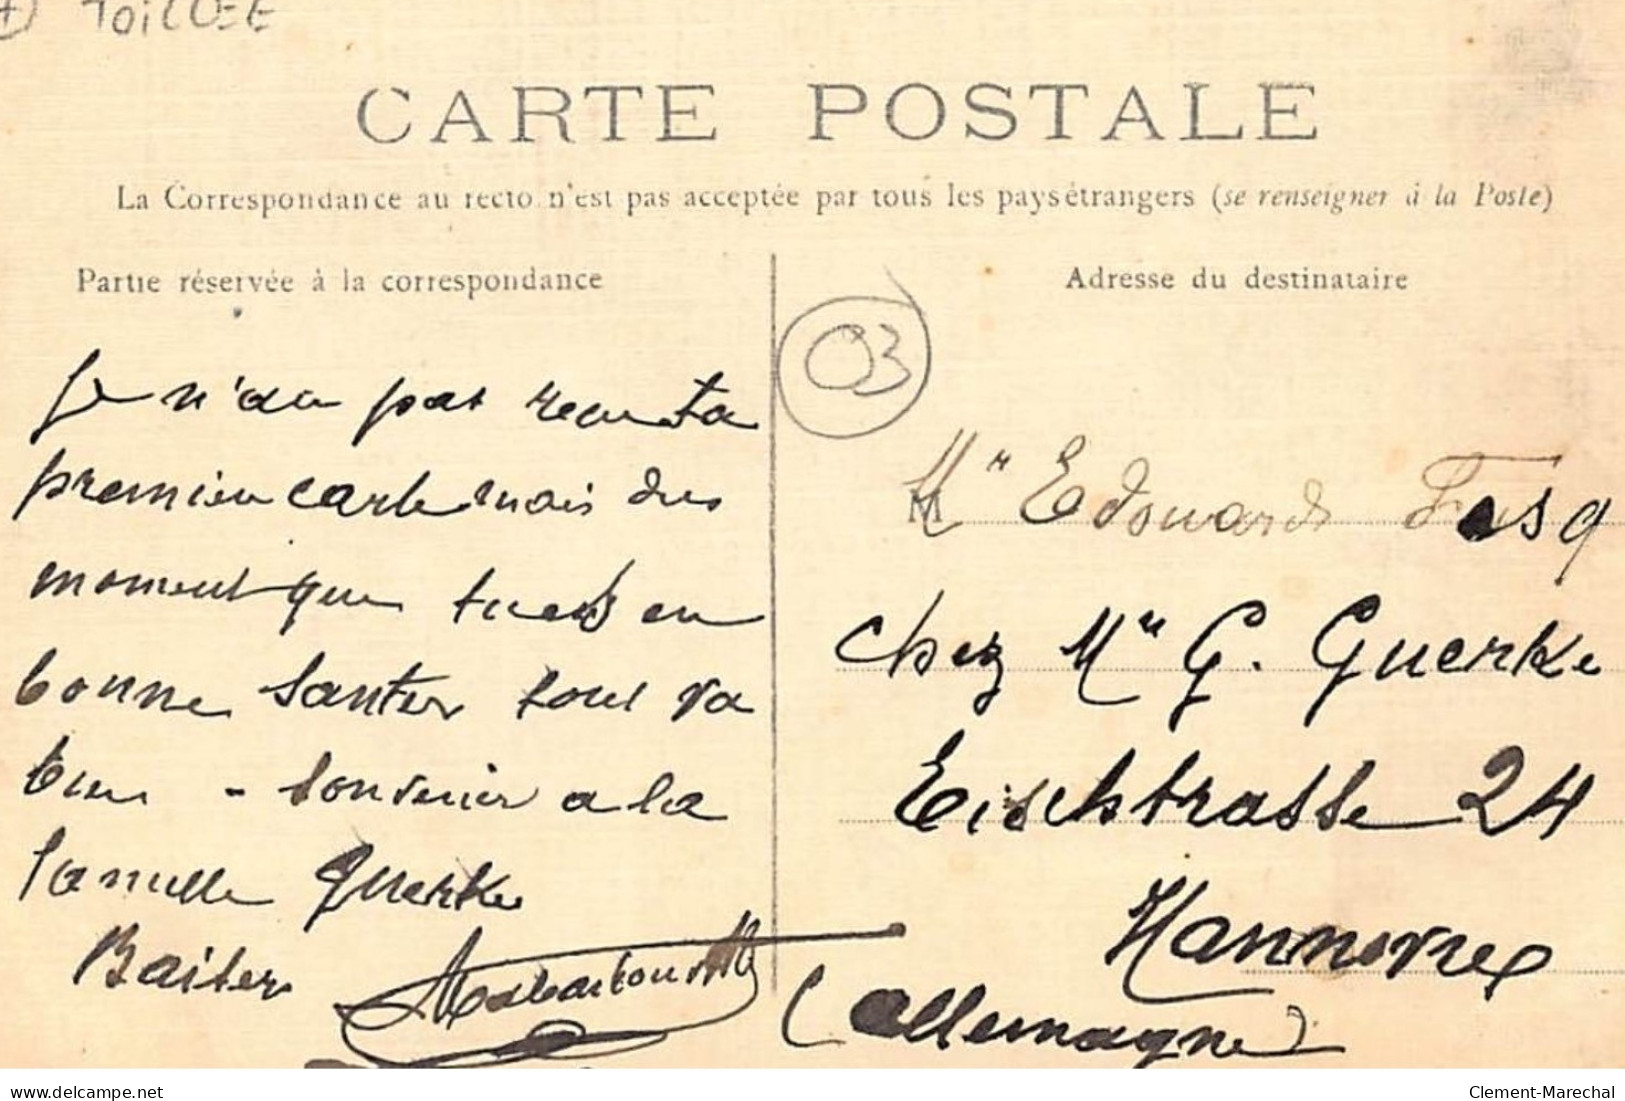 TOILLEE
CARTE POSTALE
La Correspondance au recto n'est pas acceptée par tous les pays étrangers (se renseigner à la Poste)
Partie réservée à la correspondance
Adresse du destinataire
03
Je n'ai pas recu ta
premier carte mais du
moment que tu es en
bonne santer tout va
bien - souvenir a la
famille Guerke
Baiser
M
Mr Edouard
chez Mr G. Guerke
Eichstrasse 24
Hannovre
(allemagne)
delcampe.net
Clement-Marechal